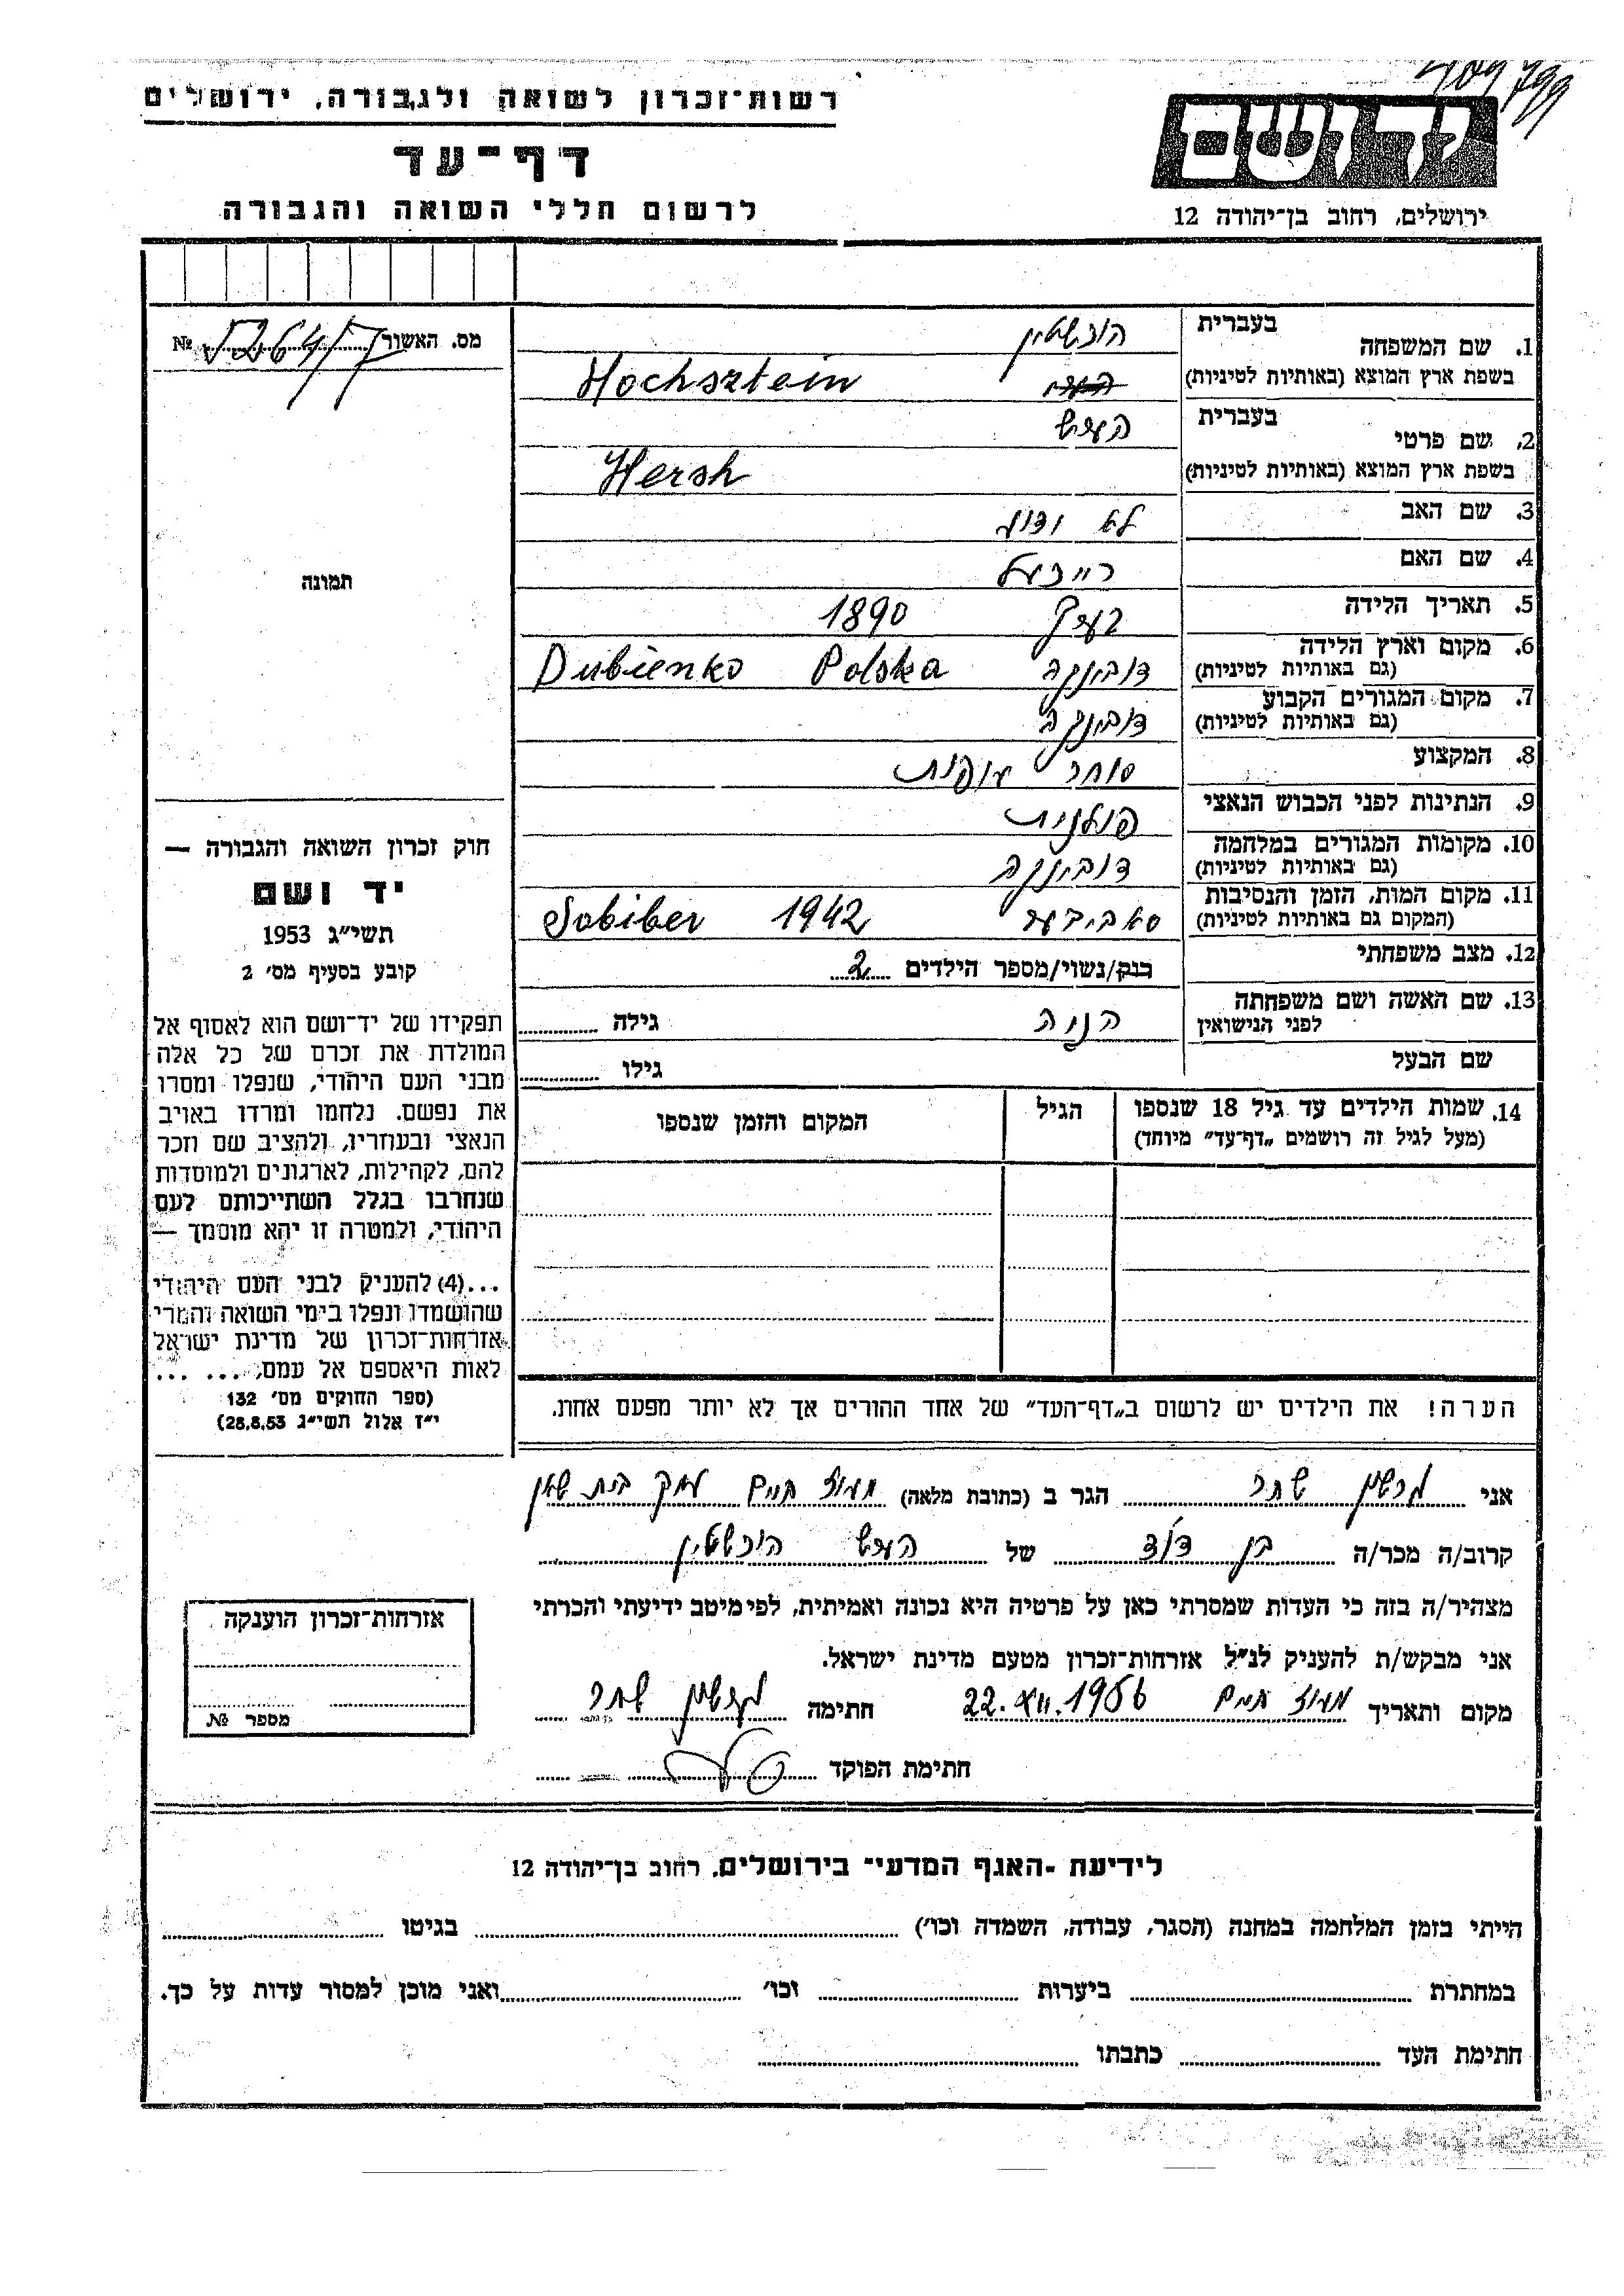 רשות־זכרון לשואה ולגבורה, ירושלים
דף־עד
לרשום חללי השואה והגבורה
יד ושם
ירושלים, רחוב בן־יהודה 12
מס. האשור № 52647
תמונה
1. שם המשפחה בעברית הוכשטין
בשפת ארץ המוצא (באותיות לטיניות) Hochsztein
2. שם פרטי בעברית הערש
בשפת ארץ המוצא (באותיות לטיניות) Hersh
3. שם האב לא ידוע
4. שם האם רייכעל
5. תאריך הלידה בערך 1890
6. מקום וארץ הלידה (גם באותיות לטיניות) דובינקה Dubienko Polska
7. מקום המגורים הקבוע (גם באותיות לטיניות) דובינקה
8. המקצוע סוחר עופות
9. הנתינות לפני הכבוש הנאצי פולנית
10. מקומות המגורים במלחמה (גם באותיות לטיניות) דובינקה
11. מקום המות, הזמן והנסיבות (המקום גם באותיות לטיניות) סאביבער Sobiber 1942
12. מצב משפחתי רווק/נשוי/מספר הילדים 2
13. שם האשה ושם משפחתה לפני הנישואין גילה
שם הבעל גילו
14. שמות הילדים עד גיל 18 שנספו (מעל לגיל זה רושמים „דף־עד” מיוחד) הגיל המקום והזמן שנספו
הערה! את הילדים יש לרשום ב„דף־העד” של אחד ההורים אך לא יותר מפעם אחת.
חוק זכרון השואה והגבורה —
יד ושם
תשי״ג 1953
קובע בסעיף מס׳ 2
תפקידו של יד־ושם הוא לאסוף אל
המולדת את זכרם של כל אלה
מבני העם היהודי, שנפלו ומסרו
את נפשם. נלחמו ומרדו באויב
הנאצי ובעוזריו, ולהציב שם וזכר
להם, לקהילות, לארגונים ולמוסדות
שנחרבו בגלל השתייכותם לעם
היהודי, ולמטרה זו יהא מוסמך —
...(4) להעניק לבני העם היהודי
שהושמדו ונפלו בימי השואה והמרי
אזרחות־זכרון של מדינת ישראל
לאות היאספם אל עמם, ... ...
(ספר החוקים מס׳ 132
י״ז אלול תשי״ג 28.8.53)
אני שחר הגר ב (כתובת מלאה) מעוז חיים עמק בית שאן
קרוב/ה מכר/ה בן דוד של הערש הוכשטין
מצהיר/ה בזה כי העדות שמסרתי כאן על פרטיה היא נכונה ואמיתית, לפי מיטב ידיעתי והכרתי
אני מבקש/ת להעניק לנ״ל אזרחות־זכרון מטעם מדינת ישראל.
מקום ותאריך מעוז חיים 22.XII.1956 חתימה שחר
חתימת הפוקד
אזרחות־זכרון הוענקה
מספר №
לידיעת ־האגף המדעי־ בירושלים, רחוב בן־יהודה 12
הייתי בזמן המלחמה במחנה (הסגר, עבודה, השמדה וכו׳) בגיטו
במחתרת ביערות וכו׳ ואני מוכן למסור עדות על כך.
חתימת העד כתבתו